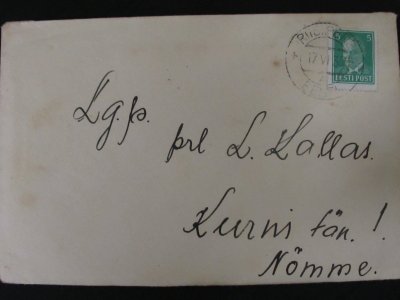 5 5
EESTI POST
17 VI
Lg. p.
prl L. Kallas.
Kurni tän. !
Nõmme.